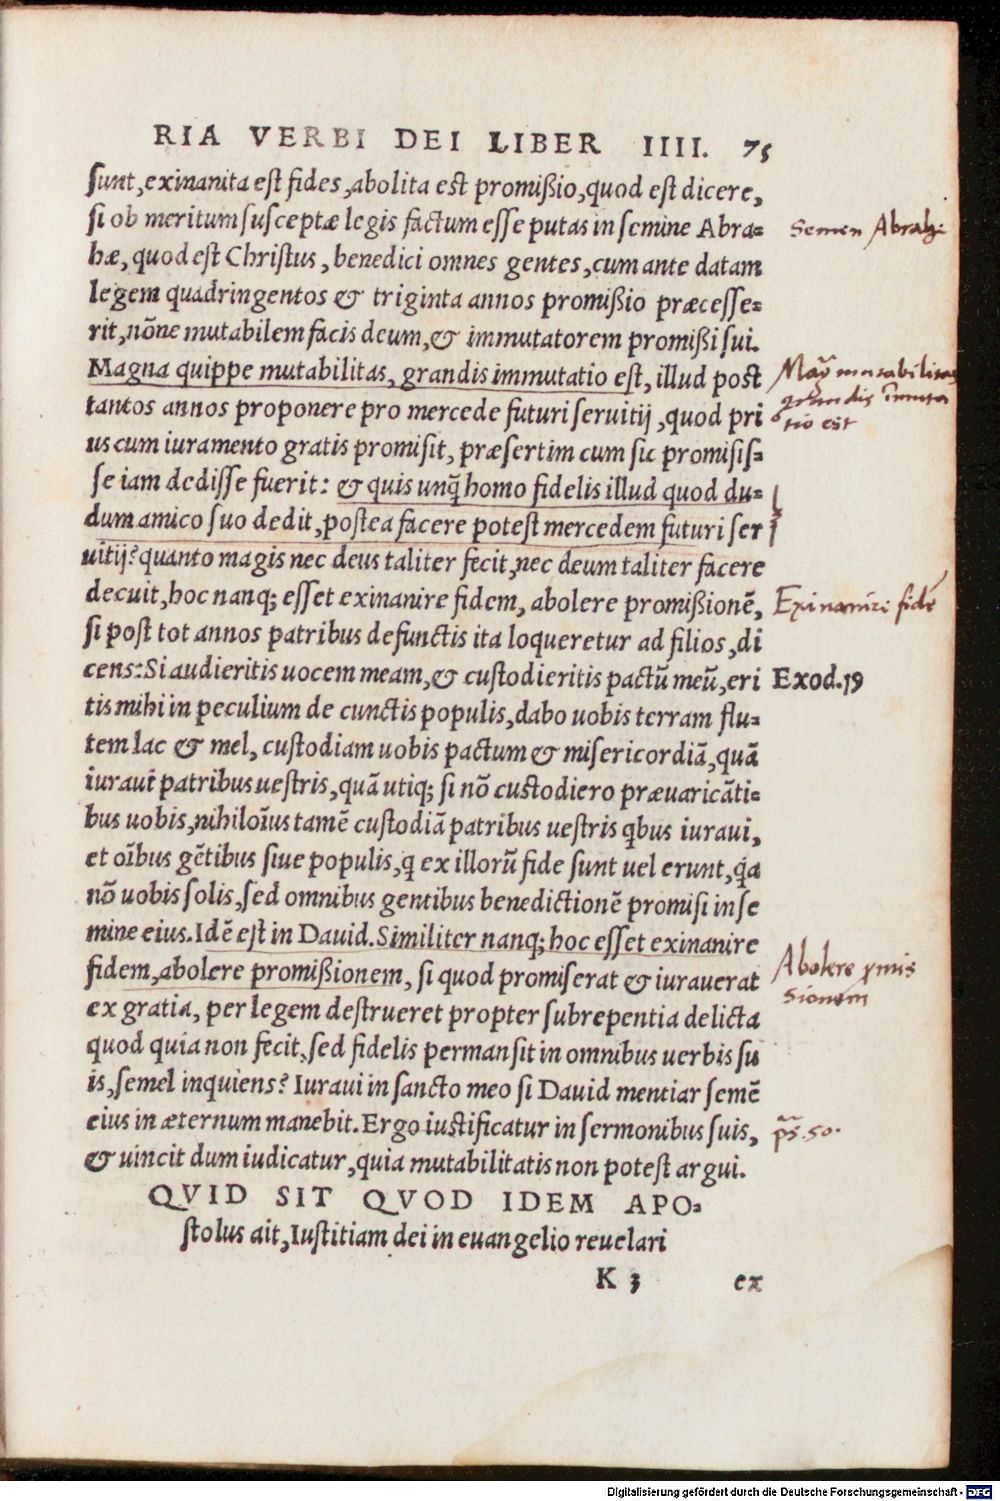 RIA VERBI DEI LIBER IIII. 75
sunt, exinanita est fides, abolita est promißio, quod est dicere,
si ob meritum susceptæ legis factum esse putas in semine Abra=
Semen Abrahę
hæ, quod est Christus, benedici omnes gentes, cum ante datam
legem quadringentos & triginta annos promißio præcesse=
rit, nõne mutabilem facis deum, & immutatorem promißi sui.
Magna quippe mutabilitas, grandis immutatio est, illud post
mutabilitas
tantos annos proponere pro mercede futuri seruitij, quod pri
grandis ĩmuta
tio est
us cum iuramento gratis promisit, præsertim cum sic promisis=
se iam dedisse fuerit: & quis unq̃ homo fidelis illud quod du=
dum amico suo dedit, postea facere potest mercedem futuri ser
uitij? quanto magis nec deus taliter fecit, nec deum taliter facere
decuit, hoc nanq; esset exinanire fidem, abolere promißionẽ,
Exinanire fidẽ
si post tot annos patribus defunctis ita loqueretur ad filios, di
cens: Si audieritis uocem meam, & custodieritis pactũ meũ, eri
Exod. 19
tis mihi in peculium de cunctis populis, dabo uobis terram flu=
tem lac & mel, custodiam uobis pactum & misericordiã, quã
iuraui patribus uestris, quã utiq; si nõ custodiero præuaricãti=
bus uobis, nihiloĩus tamẽ custodiã patribus uestris q̃bus iuraui,
et oĩbus gẽtibus siue populis, q̃ ex illorũ fide sunt uel erunt, q̃a
nõ uobis solis, sed omnibus gentibus benedictionẽ promisi in se
mine eius. Idẽ est in Dauid. Similiter nanq; hoc esset exinanire
fidem, abolere promißionem, si quod promiserat & iurauerat
Abolere ꝓmis
sionem
ex gratia, per legem destrueret propter subrepentia delicta
quod quia non fecit, sed fidelis permansit in omnibus uerbis su
is, semel inquiens? Iuraui in sancto meo si Dauid mentiar semẽ
eius in æternum manebit. Ergo iustificatur in sermonibus suis,
ps̃. 50.
& uincit dum iudicatur, quia mutabilitatis non potest argui.
QVID SIT QVOD IDEM APO=
stolus ait, Iustitiam dei in euangelio reuelari
K 3 ex
Digitalisierung gefördert durch die Deutsche Forschungsgemeinschaft - DFG